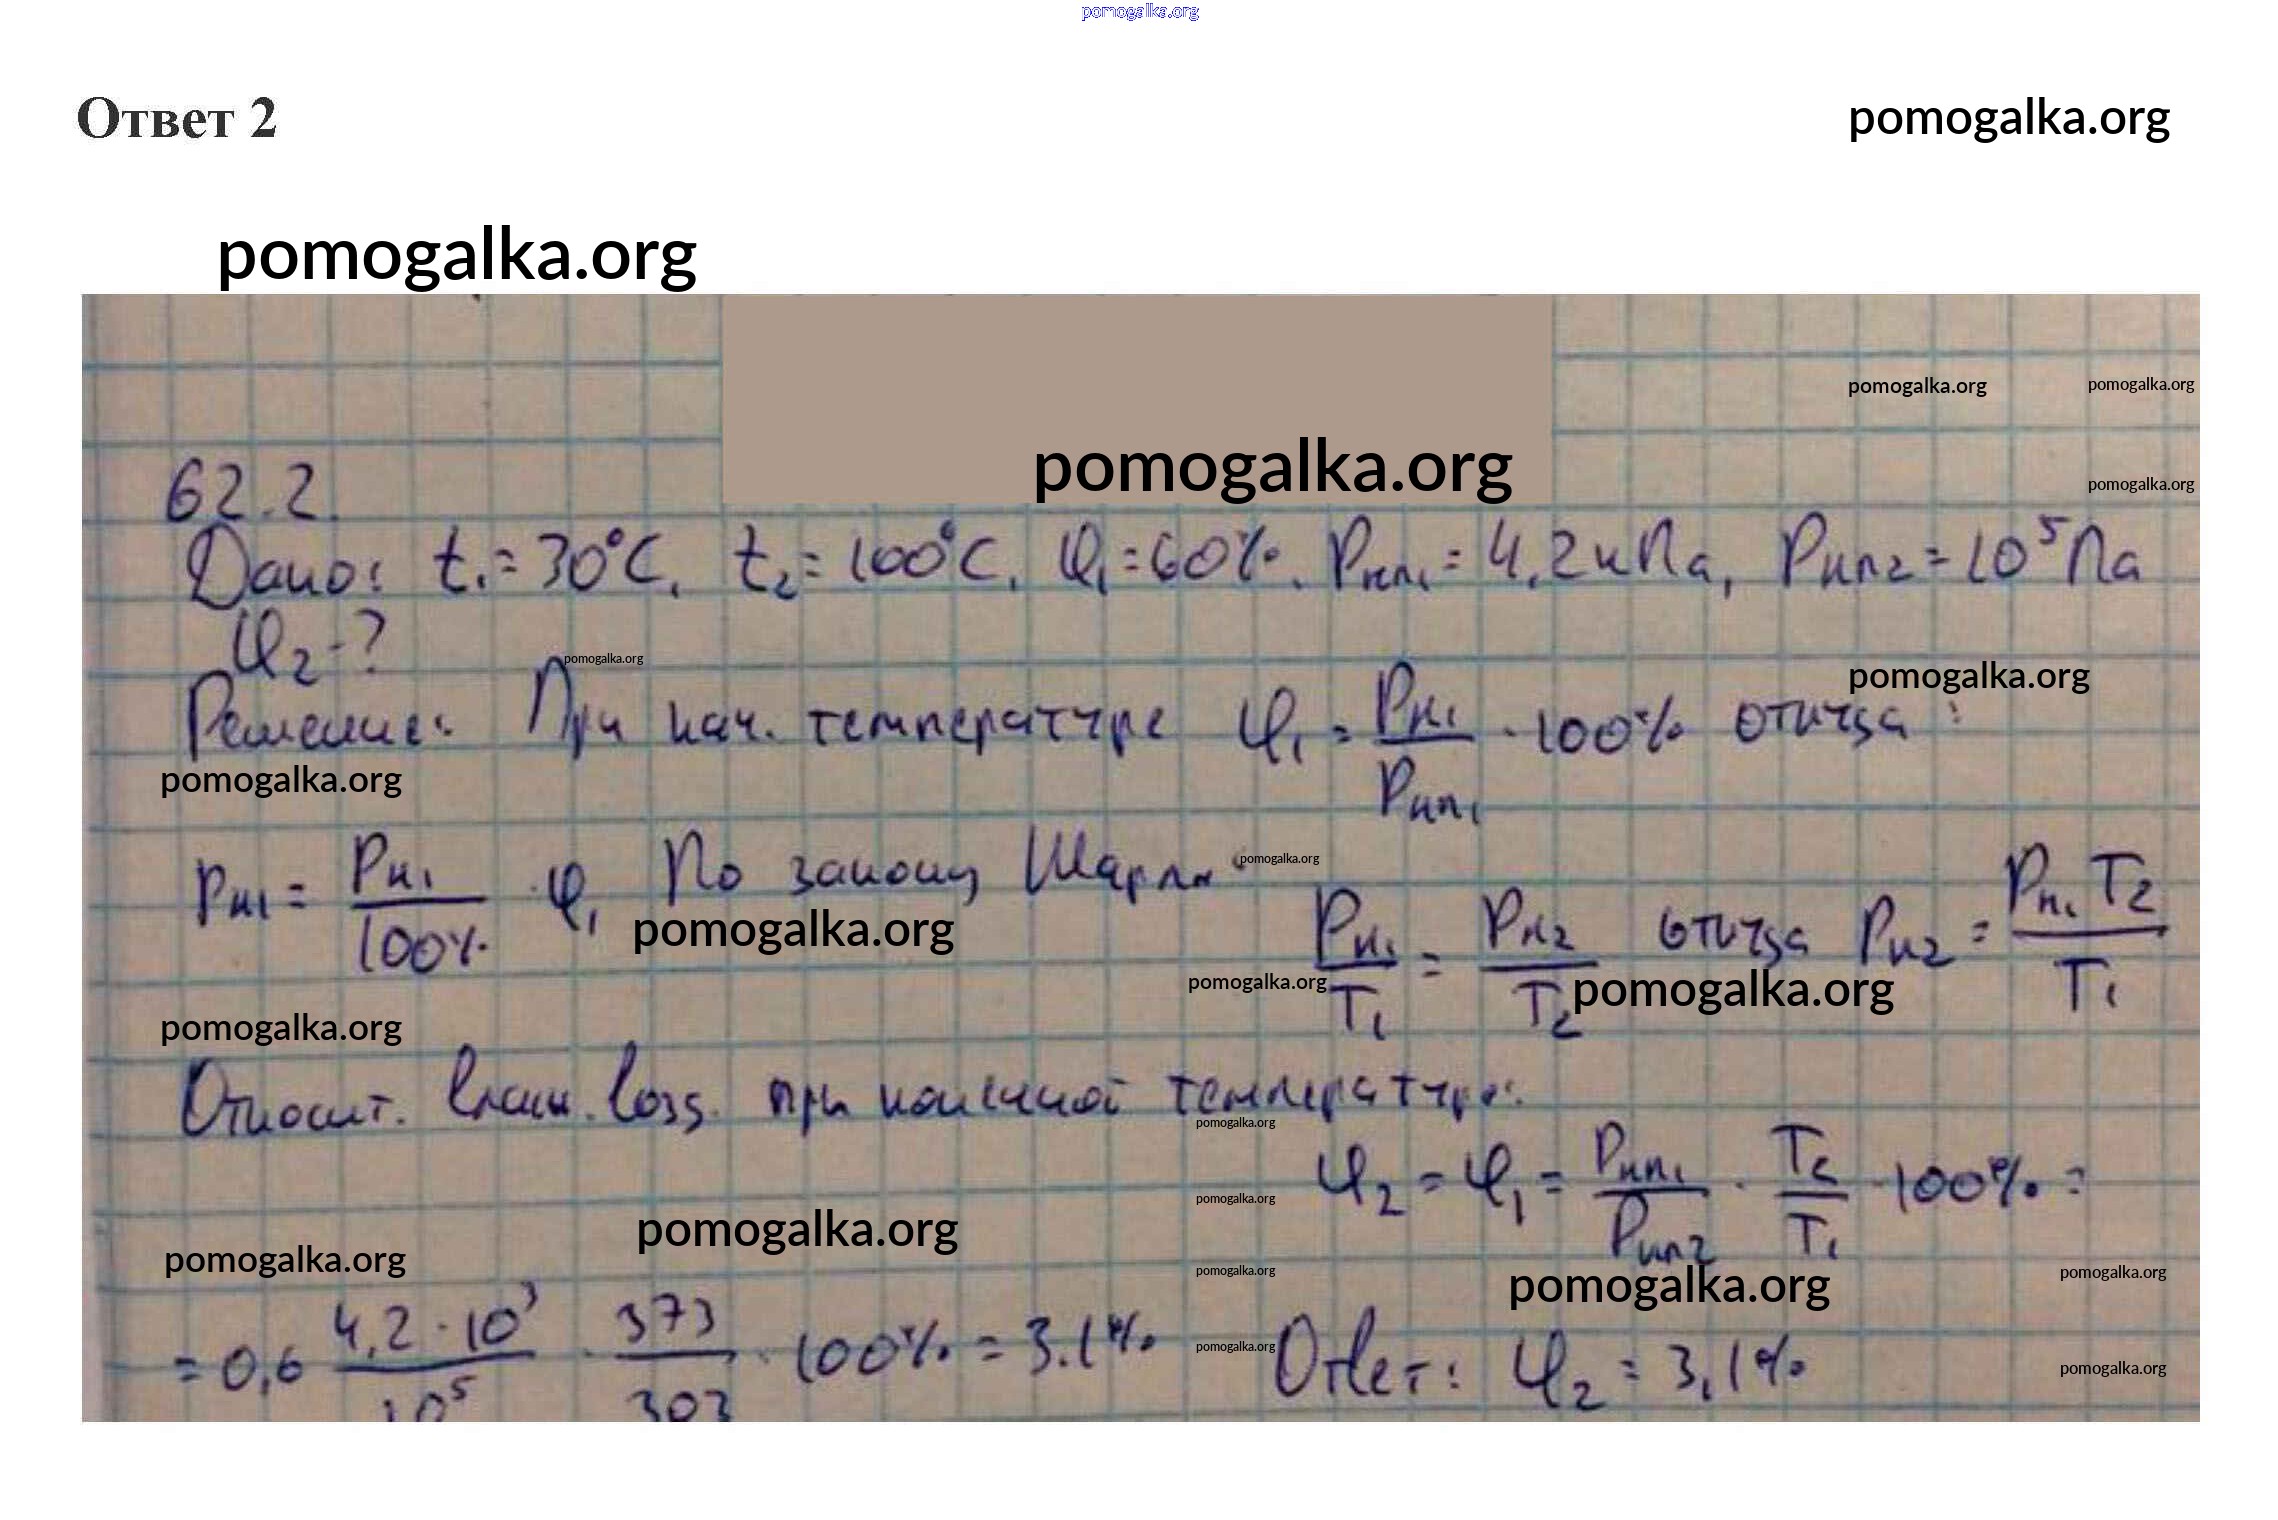 pomogalka.org
Ответ 2 pomogalka.org
pomogalka.org
pomogalka.org pomogalka.org
pomogalka.org
pomogalka.org
62.2.
Дано: t₁ = 30°C, t₂ = 100°C, φ₁ = 60%. Pнп₁ = 4,2 кПа, Pнп2 = 10⁵ Па
φ₂ - ?
pomogalka.org
Решение: При нач. температуре φ₁ = Pн₁/Pнп₁ · 100% откуда:
pomogalka.org
pomogalka.org
Pн₁ = Pн₁/100% · φ₁ По закону Шарля: Pн₁/T₁ = Pн2/T₂ откуда Pн2 = Pн₁T₂/T₁
pomogalka.org
pomogalka.org
pomogalka.org pomogalka.org
pomogalka.org
Относит. влажн. возд. при конечной температуре:
pomogalka.org
φ₂ = φ₁ = Pнп₁/Pнп2 · T₂/T₁ · 100% =
pomogalka.org
pomogalka.org
pomogalka.org pomogalka.org pomogalka.org pomogalka.org
= 0,6 4,2·10³/10⁵ · 373/303 · 100% = 3.1% Ответ: φ₂ = 3,1%
pomogalka.org pomogalka.org